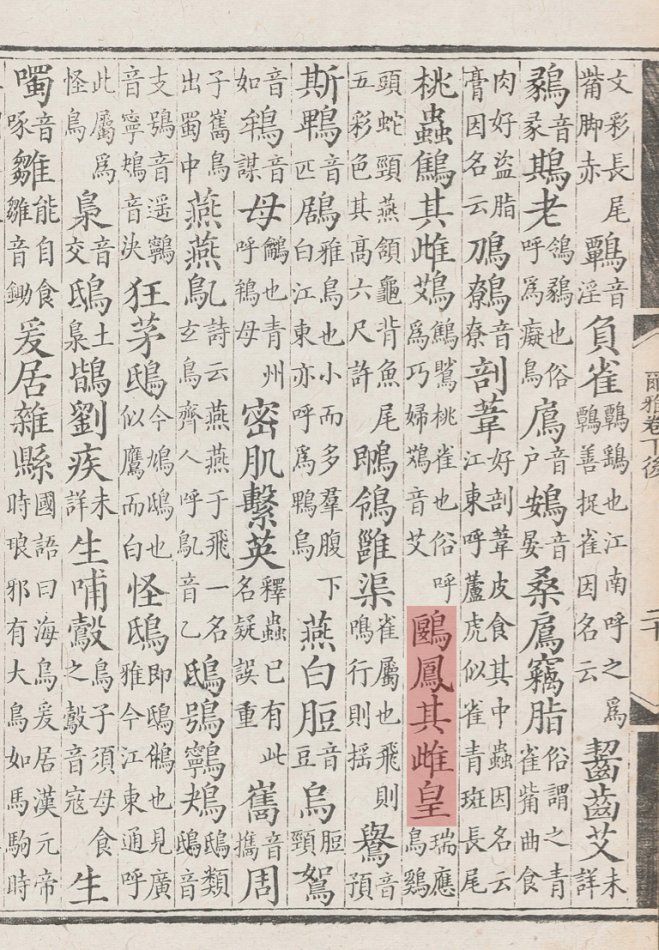 爾雅卷下後
二十
文彩長尾觜脚赤鷣音淫負雀鷣鷂也江南呼之為鷣善捉雀因名云齧齒艾未詳
鶨音彖鶀老鳹鶨也俗呼為癡鳥鳸音戶鴳音晏桑鳸竊脂俗謂之青雀觜曲食
肉好盜脂膏因名云鳭鷯音寮剖葦好剖葦皮食其中蟲因名云江東呼蘆虎似雀青斑長尾
桃蟲鷦其雌鴱鷦䳟桃雀也俗呼為巧婦鴱音艾鶠鳳其雌皇瑞應鳥鷄
頭蛇頸燕頷龜背魚尾五彩色其高六尺許䳭鴒雝渠雀屬也飛則鳴行則搖鸒音預
斯鵯音匹鶋雅烏也小而多羣腹下白江東亦呼為鵯烏燕白脰音豆烏脰頸鴽
音如鴾音謀母鶴也青州呼鴾母密肌繫英釋蟲已有此名疑誤重巂音攜周
子巂鳥出蜀中燕燕鳦詩云燕燕于飛一名玄鳥齊人呼鳦音乙鴟鴞鸋鴂鴟類鴟音
支鴞音遥鸋音寧鴂音決狂茅鴟今鳩鴟也似鷹而白怪鴟即鴟鵂也見廣雅今江東通呼
此屬為怪鳥梟音交鴟土梟鶛劉疾未詳生哺鷇鳥子須母食之鷇音寇生
噣音啄雛能自食雛音鋤爰居雜縣國語曰海鳥爰居漢元帝時琅邪有大鳥如馬駒時